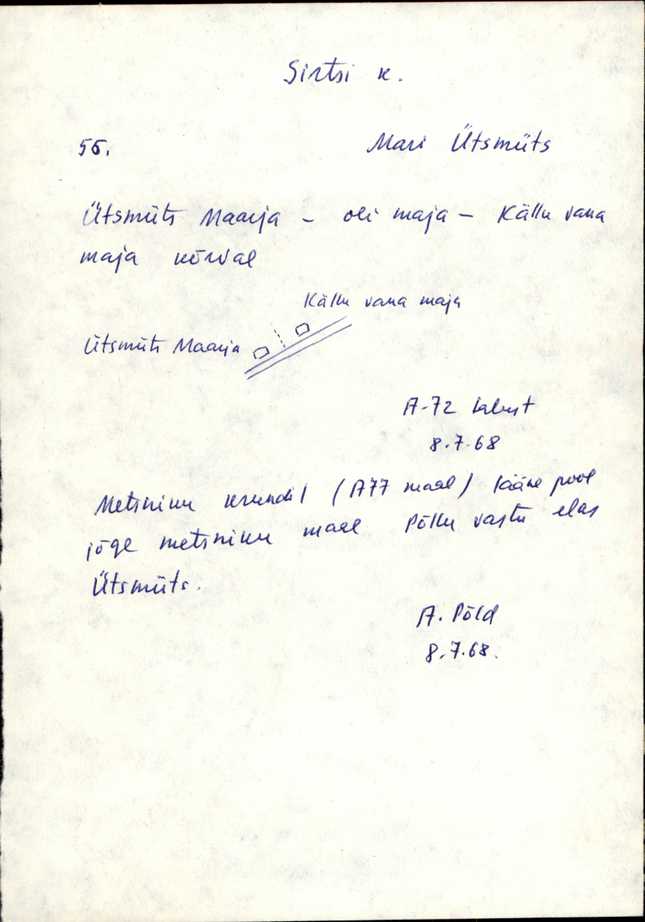 Sirtsi k.
56. Mari Ütsmüts
Ütsmüts Maarja – oli maja – Källu vana
maja kõrval
Källu vana maja
Ütsmüts Maarja
A-72 talust
8.7.68
Metsniku krundil (A77 maal) lääne pool
jõge metsniku maal Põllu vastu elas
Ütsmüts.
A. Põld
8.7.68.